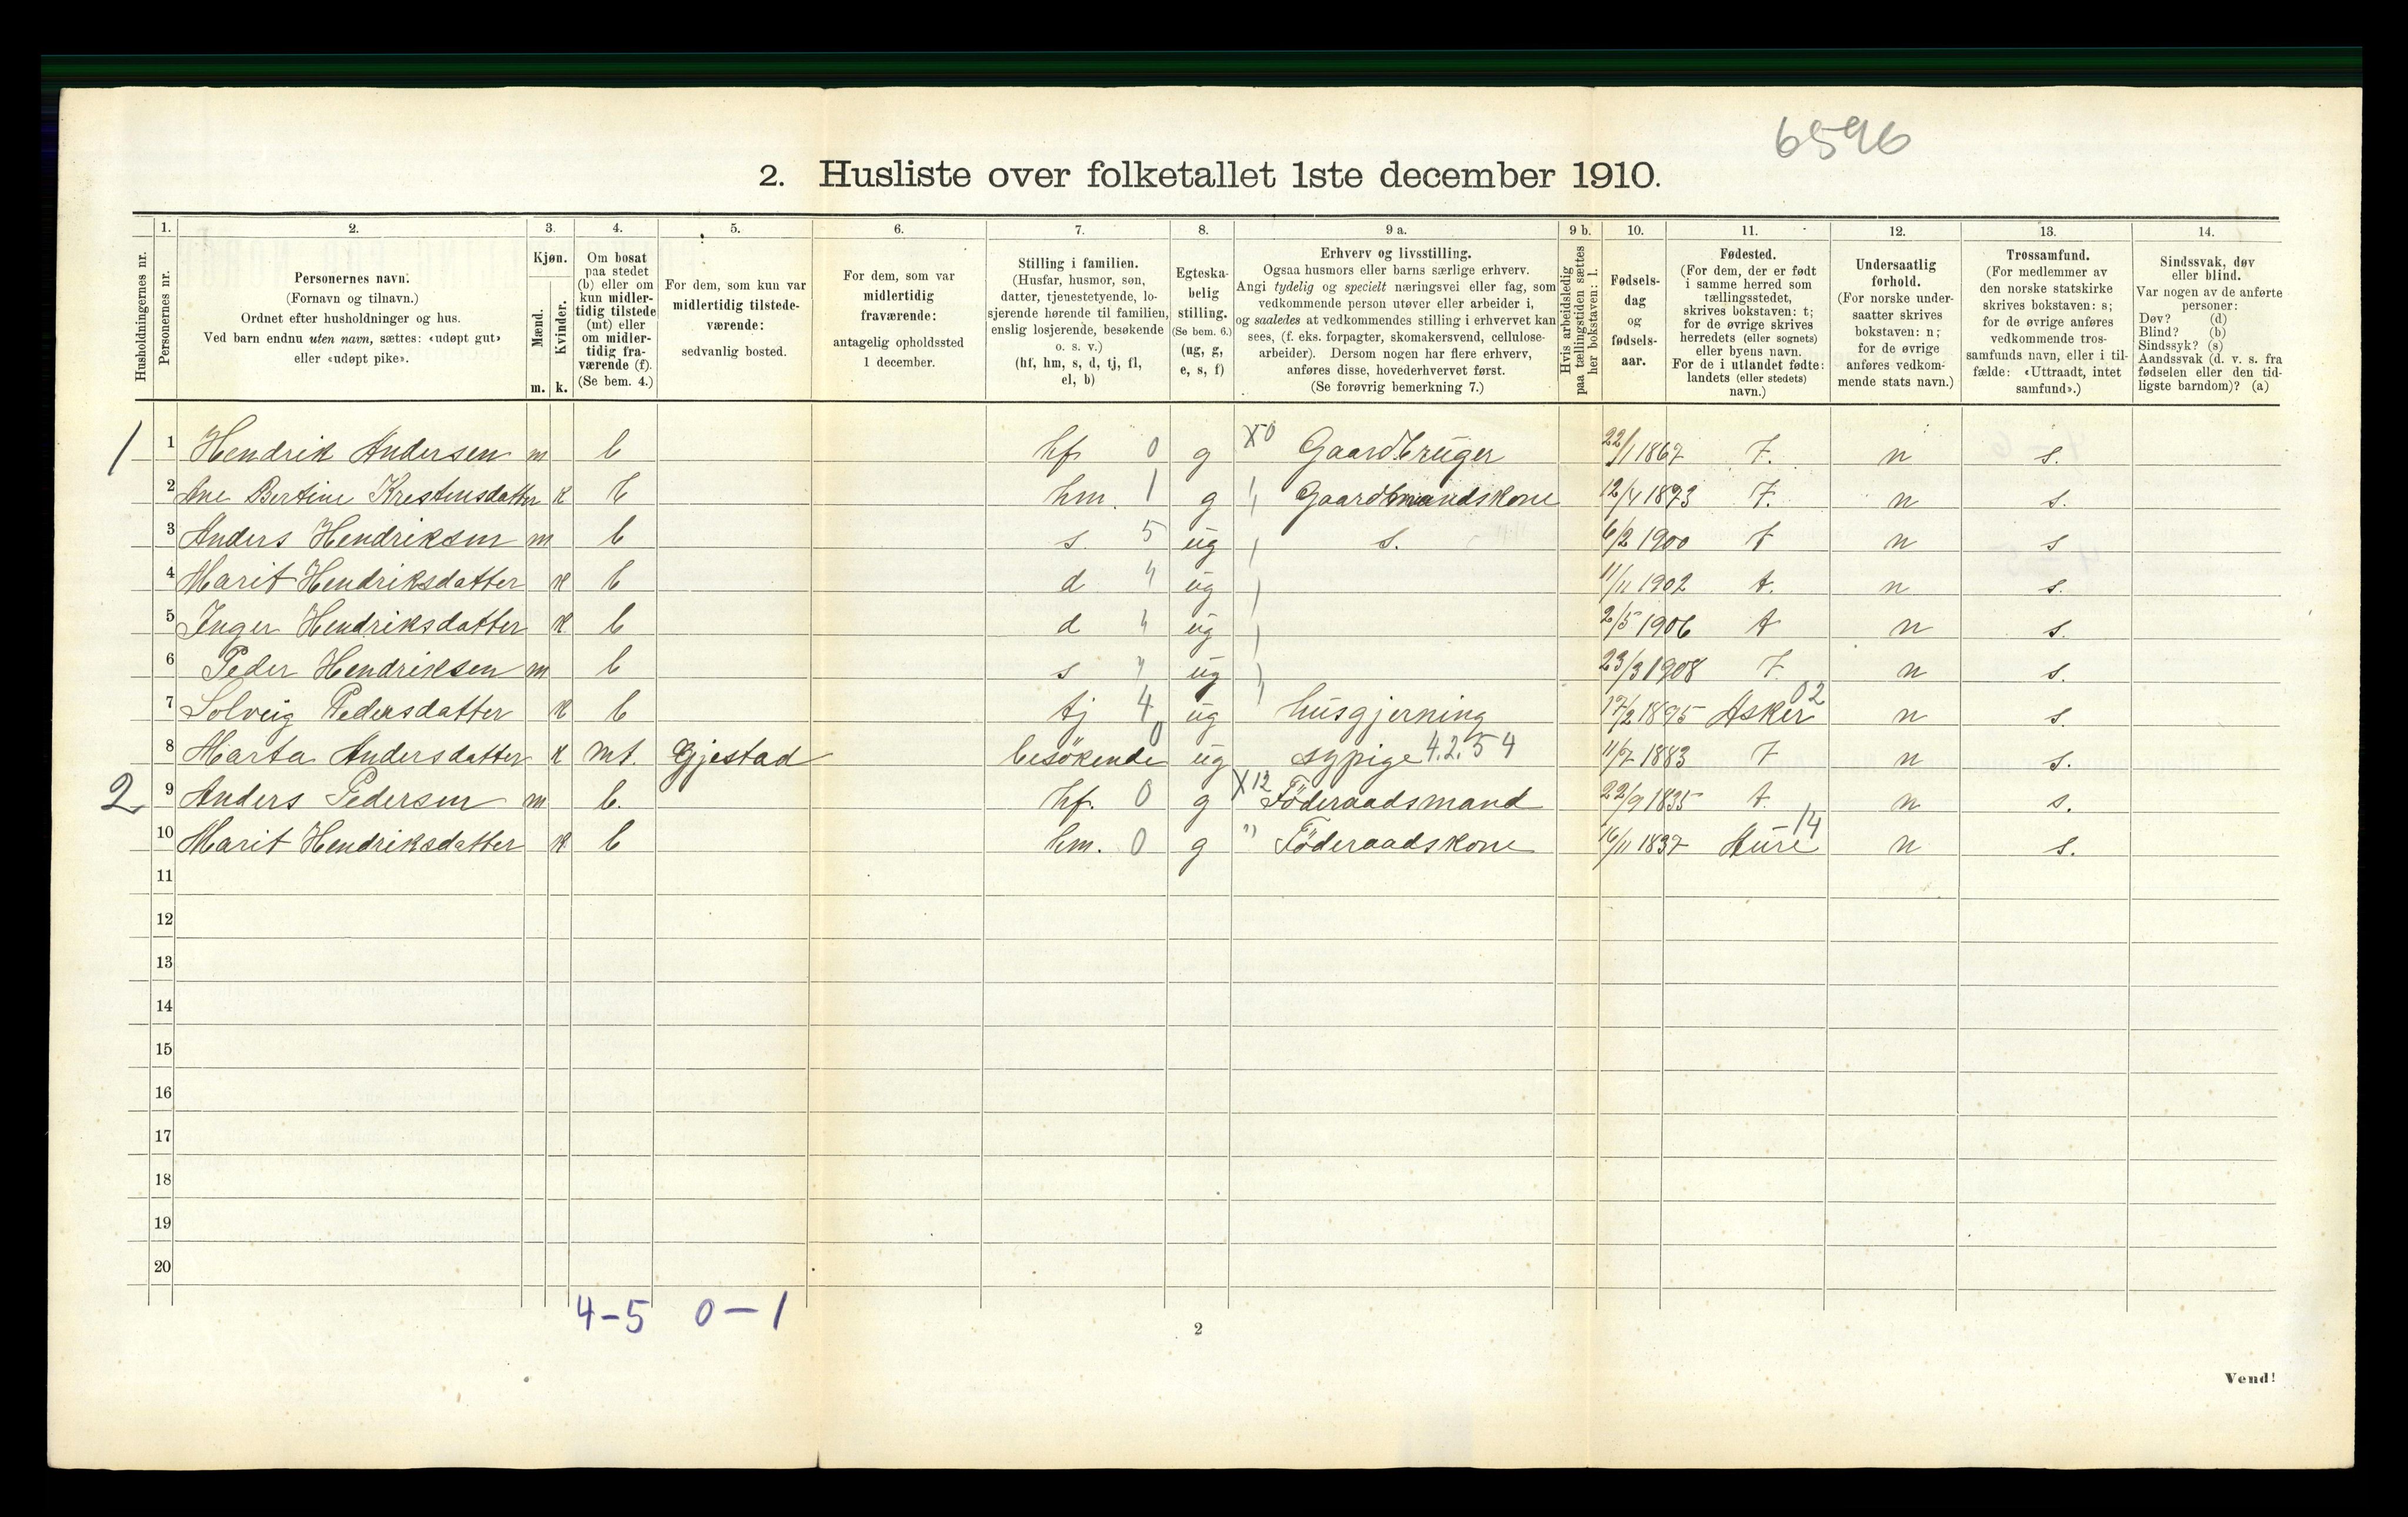 6596
2. Husliste over folketallet 1ste december 1910.
1. 2. 3. 4. 5. 6. 7. 8. 9 a. 9 b. 10. 11. 12. 13. 14.
Husholdningernes nr.
Personernes nr.
Personernes navn.
(Fornavn og tilnavn.)
Ordnet efter husholdninger og hus.
Ved barn endnu uten navn, sættes: «udøpt gut»
eller «udøpt pike».
Kjøn.
Mænd.
Kvinder.
m. k.
Om bosat
paa stedet
(b) eller om
kun midler-
tidig tilstede
(mt) eller
om midler-
tidig fra-
værende (f).
(Se bem. 4.)
For dem, som kun var
midlertidig tilstede-
værende:
sedvanlig bosted.
For dem, som var
midlertidig
fraværende:
antagelig opholdssted
1 december.
Stilling i familien.
(Husfar, husmor, søn,
datter, tjenestetyende, lo-
sjerende hørende til familien,
enslig losjerende, besøkende
o. s. v.)
(hf, hm, s, d, tj, fl,
el, b)
Egteska-
belig
stilling.
(Se bem. 6.)
(ug, g,
e, s, f)
Erhverv og livsstilling.
Ogsaa husmors eller barns særlige erhverv.
Angi tydelig og specielt næringsvei eller fag, som
vedkommende person utøver eller arbeider i,
og saaledes at vedkommendes stilling i erhvervet kan
sees, (f. eks. forpagter, skomakersvend, cellulose-
arbeider). Dersom nogen har flere erhverv,
anføres disse, hovederhvervet først.
(Se forøvrig bemerkning 7.)
Hvis arbeidsledig
paa tællingstiden sættes
her bokstaven: l.
Fødsels-
dag
og
fødsels-
aar.
Fødested.
(For dem, der er født
i samme herred som
tællingsstedet,
skrives bokstaven: t;
for de øvrige skrives
herredets (eller sognets)
eller byens navn.
For de i utlandet fødte:
landets (eller stedets)
navn.)
Undersaatlig
forhold.
(For norske under-
saatter skrives
bokstaven: n;
for de øvrige
anføres vedkom-
mende stats navn.)
Trossamfund.
(For medlemmer av
den norske statskirke
skrives bokstaven: s;
for de øvrige anføres
vedkommende tros-
samfunds navn, eller i til-
fælde: «Uttraadt, intet
samfund».)
Sindssvak, døv
eller blind.
Var nogen av de anførte
personer:
Døv? (d)
Blind? (b)
Sindssyk? (s)
Aandssvak (d. v. s. fra
fødselen eller den tid-
ligste barndom)? (a)
1 1 Hendrik Andersen m b hf 0 g X0 Gaardbruger 22/1 1867 t. n s.
2 Ane Bertine Krestensdatter k b hm. 1 g " Gaardmandskone 12/4 1873 t. n s.
3 Anders Hendriksen m b s. 5 ug " s. 6/2 1900 t n s
4 Marit Hendriksdatter k b d " ug " 11/11 1902 t. n s.
5 Inger Hendriksdatter k b d " ug " 2/5 1906 t n s.
6 Peder Hendriksen m b s " ug " 23/3 1908 t. n s.
7 Solveig Pedersdatter k b tj 4 ug " husgjerning 17/2 1895 Asker 02 n s.
8 Marta Andersdatter k mt. Gjestad besökende 0 ug sypige 4.2.54 11/7 1883 t n s.
2 9 Anders Pedersen m b. hf. 0 g X12 Föderaadsmand 22/9 1835 t. n s.
10 Marit Hendriksdatter k b hm. 0 g " Föderaadskone 16/11 1837 Aure 14 n s.
11
12
13
14
15
16
17
18
19
20
4-5 0-1
2
Vend!